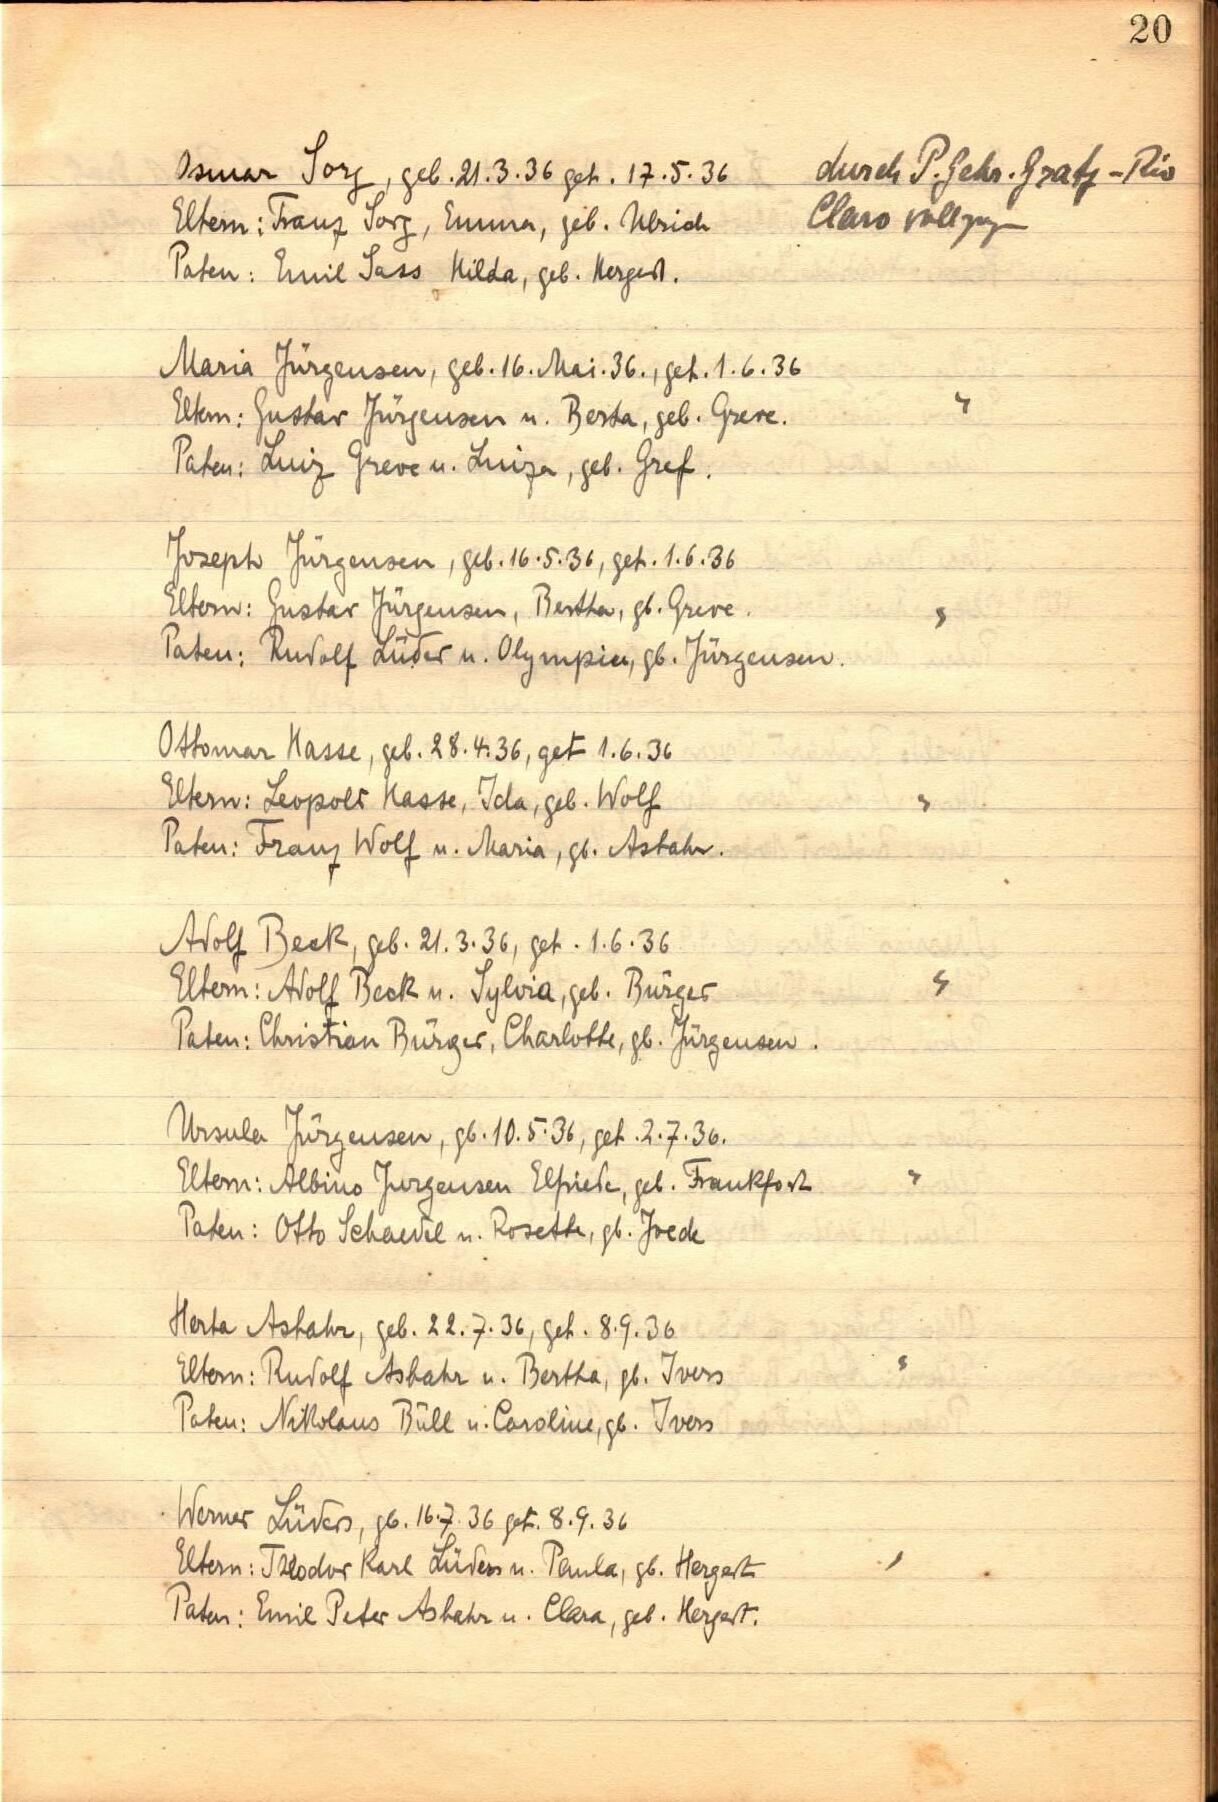 20
Osmar Sorg, geb. 21.3.36 get. 17.5.36
durch P. Gehr. Gratz - Rio
Claro vollzog
Eltern: Franz Sorg, Emma, geb. Ulrich
Paten: Emil Sass Hilda, geb. Hergert.
Maria Jürgensen, geb. 16. Mai. 36., get. 1.6.36
Eltern: Gustav Jürgensen u. Berta, geb. Greve. "
Paten: Luiz Greve u. Luiza, geb. Gref.
Joseph Jürgensen, geb. 16.5.36, get. 1.6.36
Eltern: Gustav Jürgensen, Bertha, gb. Greve. "
Paten: Rudolf Lüder u. Olympia, gb. Jürgensen.
Ottomar Hasse, geb. 28.4.36, get 1.6.36
Eltern: Leopold Hasse, Ida, geb. Wolf "
Paten: Franz Wolf u. Maria, gb. Asbahr.
Adolf Beck, geb. 21.3.36, get. 1.6.36
Eltern: Adolf Beck u. Sylvia, geb. Bürger "
Paten: Christian Bürger, Charlotte, gb. Jürgensen.
Ursula Jürgensen, gb. 10.5.36, get. 2.7.36.
Eltern: Albino Jurgensen Elfriede, geb. Frankfort "
Paten: Otto Schaedel u. Rosette, gb. Joede
Herta Asbahr, geb. 22.7.36, get. 8.9.36
Eltern: Rudolf Asbahr u. Bertha, gb. Ivers "
Paten: Nikolaus Büll u. Caroline, gb. Ivers
Werner Lüders, gb. 16.7.36 get. 8.9.36
Eltern: Theodor Karl Lüders u. Paula, gb. Hergert "
Paten: Emil Peter Asbahr u. Clara, geb. Hergert.